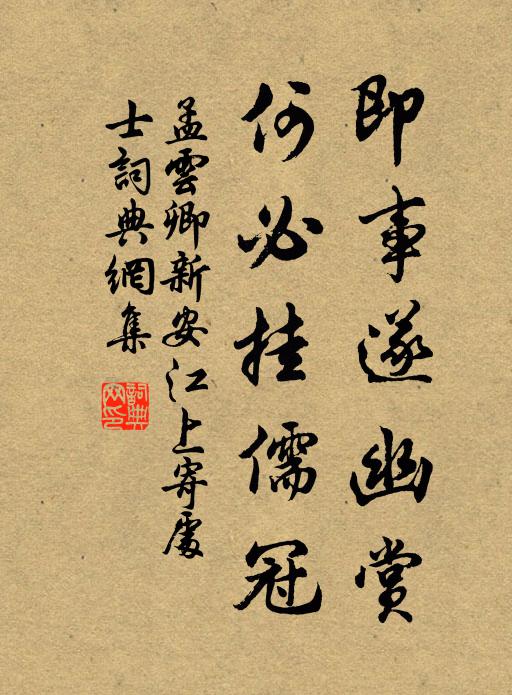 即事遂幽賞
何必挂儒冠
孟雲卿新安江上寄處
士詞典網集
詞典網印